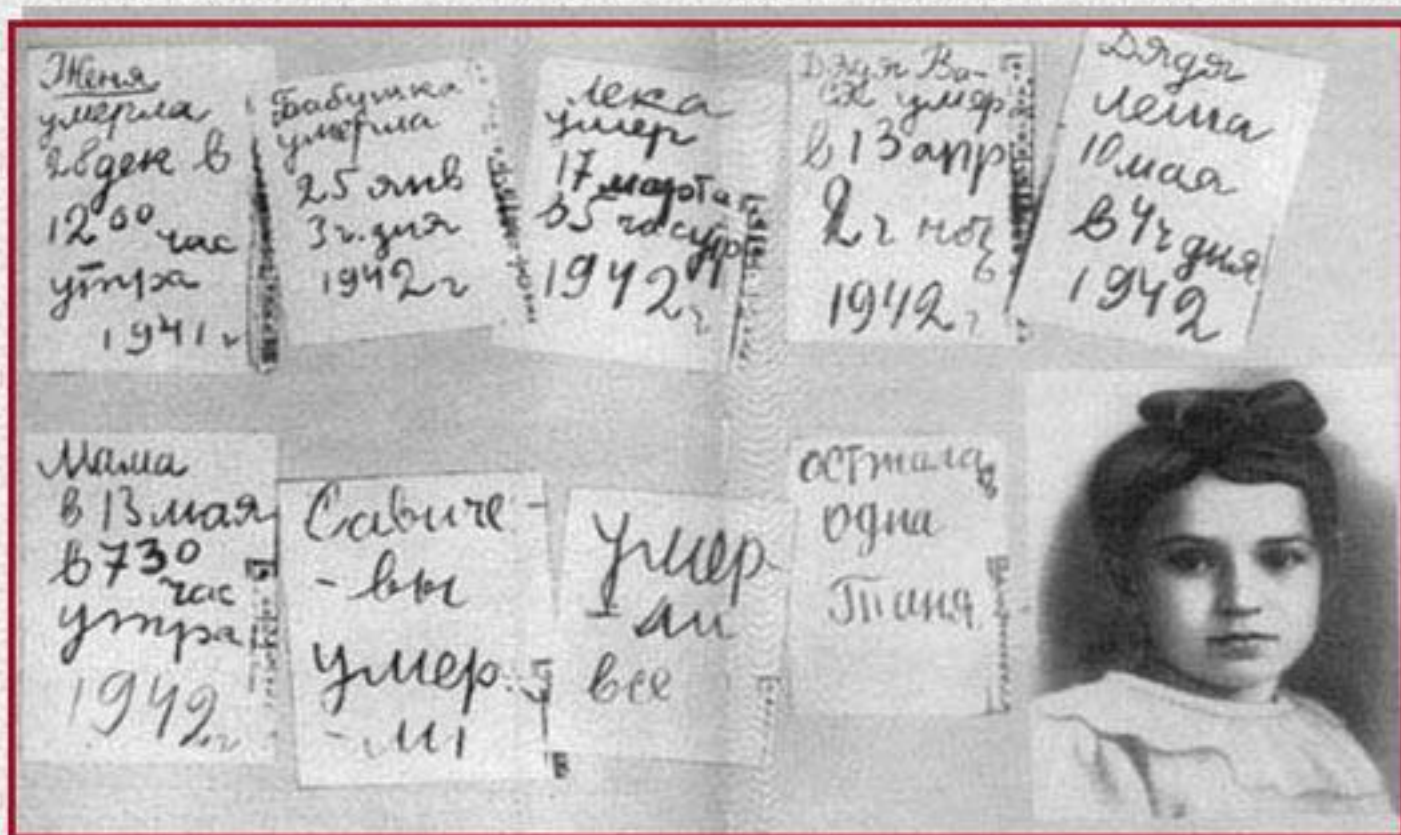 Женя
умерла
28 дек в
12 00 час
утра
1941 г
Бабушка
умерла
25 янв
3 ч. дня
1942 г
Лека
умер
17 марта
в 5 час утр
1942 г
Дядя Ва-
ся умер
в 13 апр
2 ч ноч
ь
1942 г
Дядя
Леша
10 мая
в 4 ч дня
1942
Мама
в 13 мая
в 7 30
час
утра
1942 г
Савиче-
-вы
умер.
-ли
Умер
-ли
все
Осталась
одна
Таня